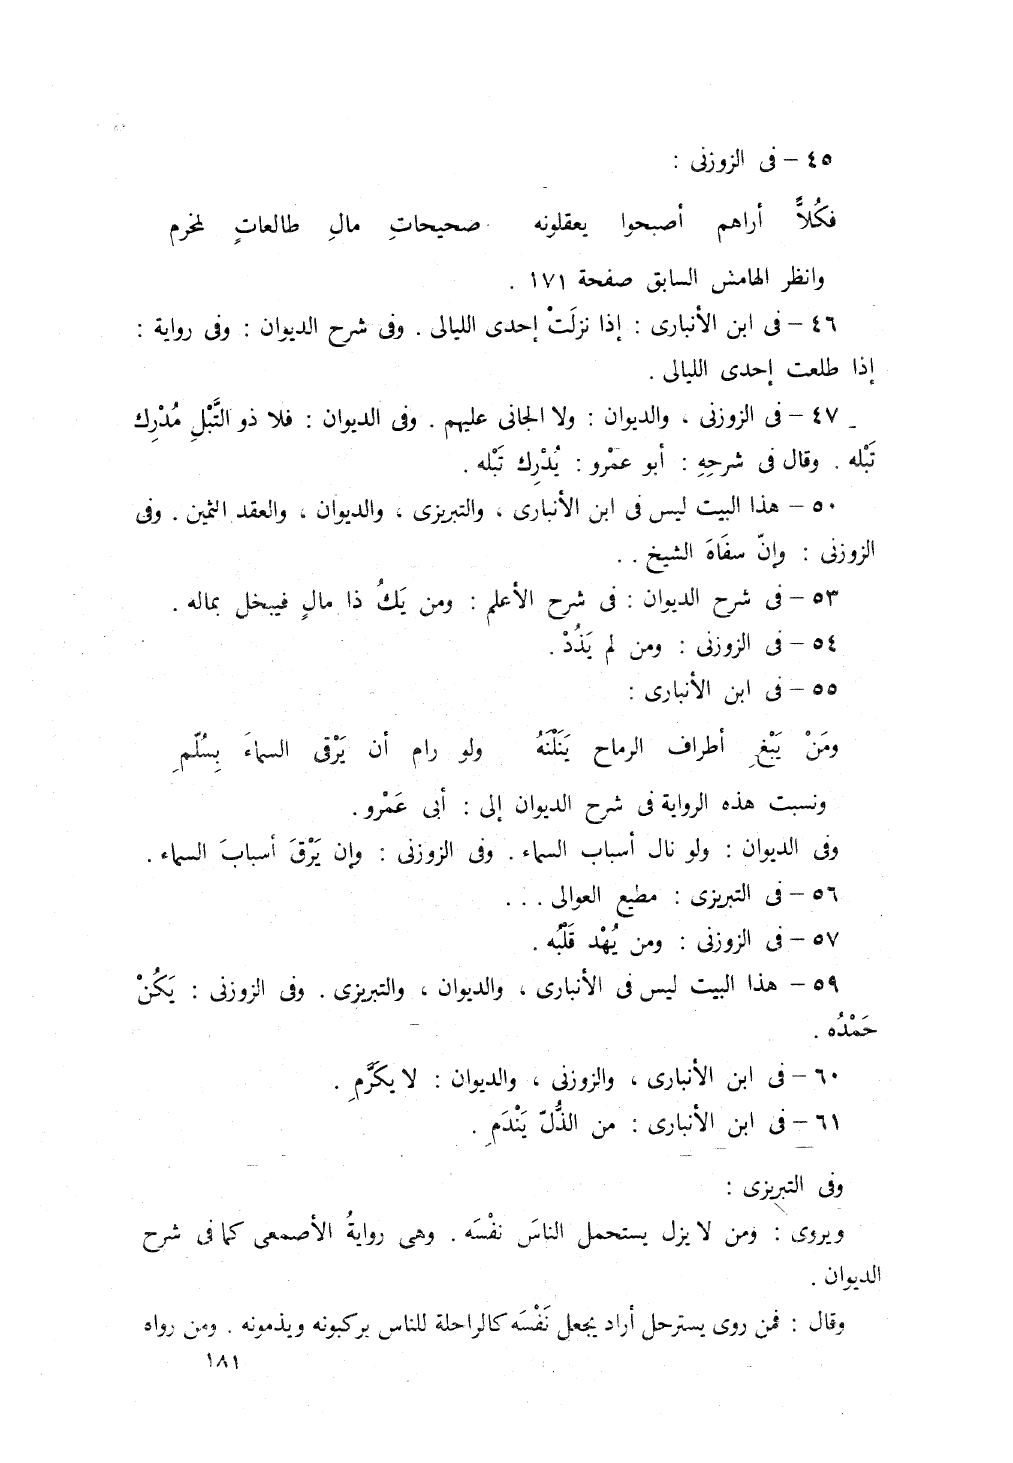 ٤٥ – فى الزوزنى :
فكُلاًّ أراهم أصبحوا يعقلونه صحيحاتِ مالِ طالعاتٍ لمخرم
وانظر الهامش السابق صفحة ١٧١ .
٤٦ – فى ابن الأنبارى : إذا نزلَتْ إحدى الليالى . وفى شرح الديوان : وفى رواية :
إذا طلعت إحدى الليالى .
٤٧ – فى الزوزنى ، والديوان : ولا الجانى عليهم . وفى الديوان : فلا ذو التَّبْلِ مُدْرِك
تَبْله . وقال فى شرحِهِ : أبو عمْرو : يُدْرِك تَبْله .
٥٠ – هذا البيت ليس فى ابن الأنبارى ، والتبريزى ، والديوان ، والعقد الثمين . وفى
الزوزنى : وإنّ سفَاهَ الشيخ . .
٥٣ – فى شرح الديوان : فى شرح الأعلم : ومن يَكُ ذا مالٍ فيبخل بماله .
٥٤ – فى الزوزنى : ومن لم يَذُدْ .
٥٥ – فى ابن الأنبارى :
ومَنْ يَبْغِ أطراف الرماح يَنَلْنَهُ ولو رام أن يَرْقى السماءَ بِسُلّمِ
ونسبت هذه الرواية فى شرح الديوان إلى : أبى عَمْرو .
وفى الديوان : ولو نال أسباب السماء . وفى الزوزنى : وإن يَرْقَ أسبابَ السماء .
٥٦ – فى التبريزى : مطيع العوالى . . .
٥٧ – فى الزوزنى : ومن يُهْد قَلْبُه .
٥٩ – هذا البيت ليس فى الأنبارى ، والديوان ، والتبريزى . وفى الزوزنى : يَكُنْ
حَمْدُه .
٦٠ – فى ابن الأنبارى ، والزوزنى ، والديوان : لا يكَرَّمِ .
٦١ – فى ابن الأنبارى : من الذُّلّ يَنْدَمِ .
وفى التبريزى :
ويروى : ومن لا يزل يستحمل الناسَ نفْسَه . وهى روايةُ الأصمعى كما فى شرح
الديوان .
وقال : فمن روى يسترحل أراد يجعل نَفْسَه كالراحلة للناس يركبونه ويذمونه . ومن رواه
١٨١